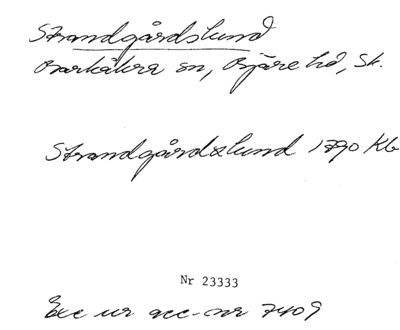 Strandgårdslund
Barkåkra sn, Bjäre hd, Sk.
Strandgårdslund 1790 Kb
Nr 23333
Exc ur acc-nr 7409